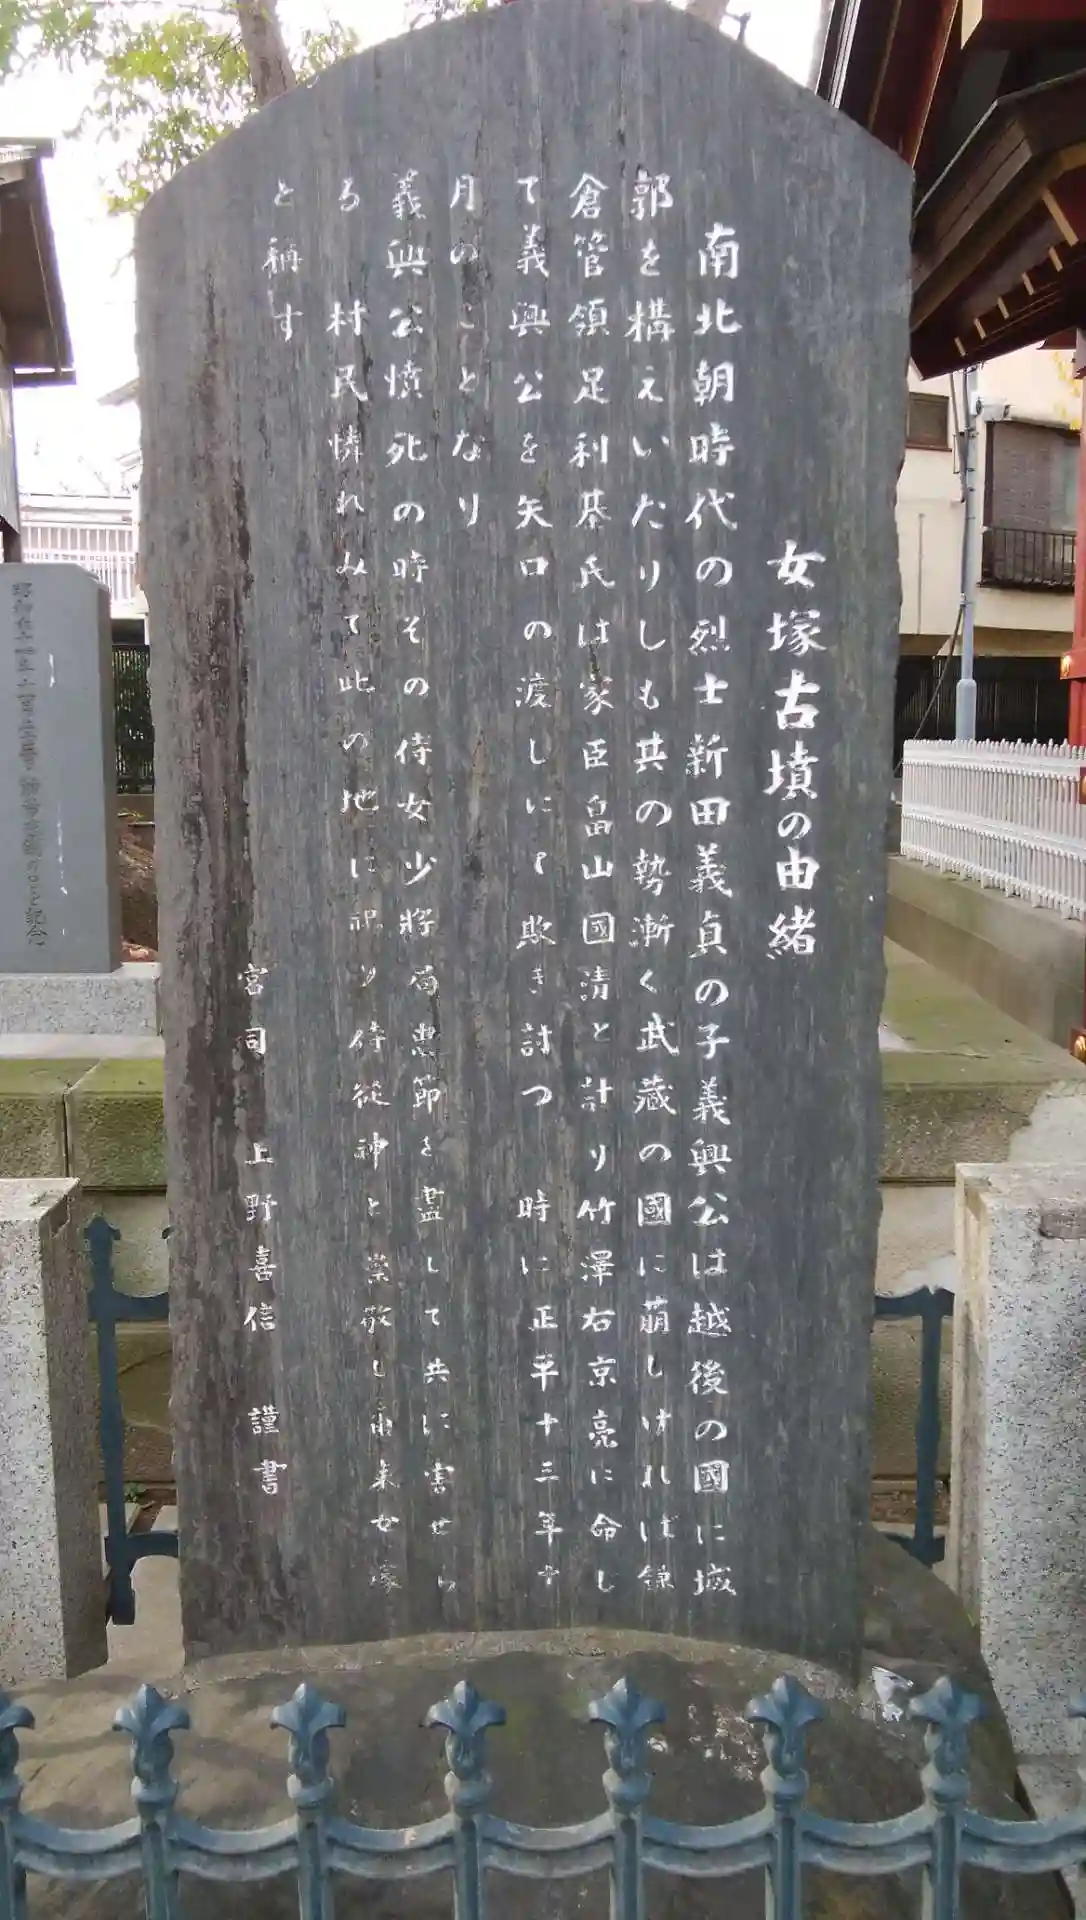 女塚古墳の由緒
南北朝時代の烈士新田義貞の子義興公は越後の國に城
郭を構えいたりしも其の勢漸く武藏の國に萠しければ鎌
倉管領足利基氏は家臣畠山國清と計り竹澤右京亮に命し
て義興公を矢口の渡しにて欺き討つ 時に正平十三年十
月のことなり
義興公憤死の時その侍女少將局忠節を盡して共に害せら
る 村民憐れみて此の地に祀り侍從神と崇敬し由来女塚
と稱す
宮司 上野喜信 謹書